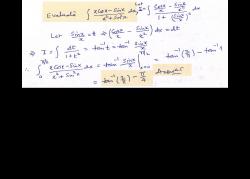 Evaluate ∫ (xcosx - sinx)/(x²+sin²x) dx, = ∫ (cosx/x - sinx/x²)/(1 + (sinx/x)²) dx
Let sinx/x = t ⇒ (cosx/x - sinx/x²) dx = dt
⇒ I = ∫ dt/(1+t²) = tan⁻¹t = tan⁻¹ sinx/x
∴ ∫₀^(π/2) (xcosx - sinx)/(x²+sin²x) dx = tan⁻¹ sinx/x |_(x=0)^(π/2) = tan⁻¹(2/π) - tan⁻¹1
= tan⁻¹(2/π) - π/4 Answer